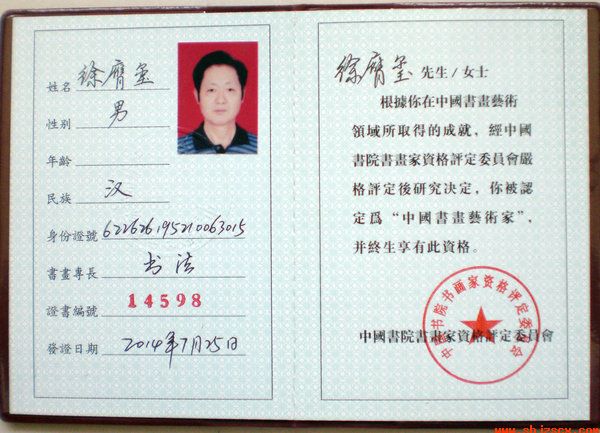 姓名 徐膺玺
性別 男
年齡
民族 汉
身份證號 622626195210063015
書畫專長 书法
證書編號 14598
發證日期 2014年7月25日
徐膺玺 先生/女士
根據你在中國書畫藝術
領域所取得的成就，經中國
書院書畫家資格評定委員會嚴
格評定後研究决定，你被認
定爲“中國書畫藝術家”，
并終生享有此資格。
中国书院书画家资格评定委员会
中國書院書畫家資格評定委員會
www.sbjzscy.com